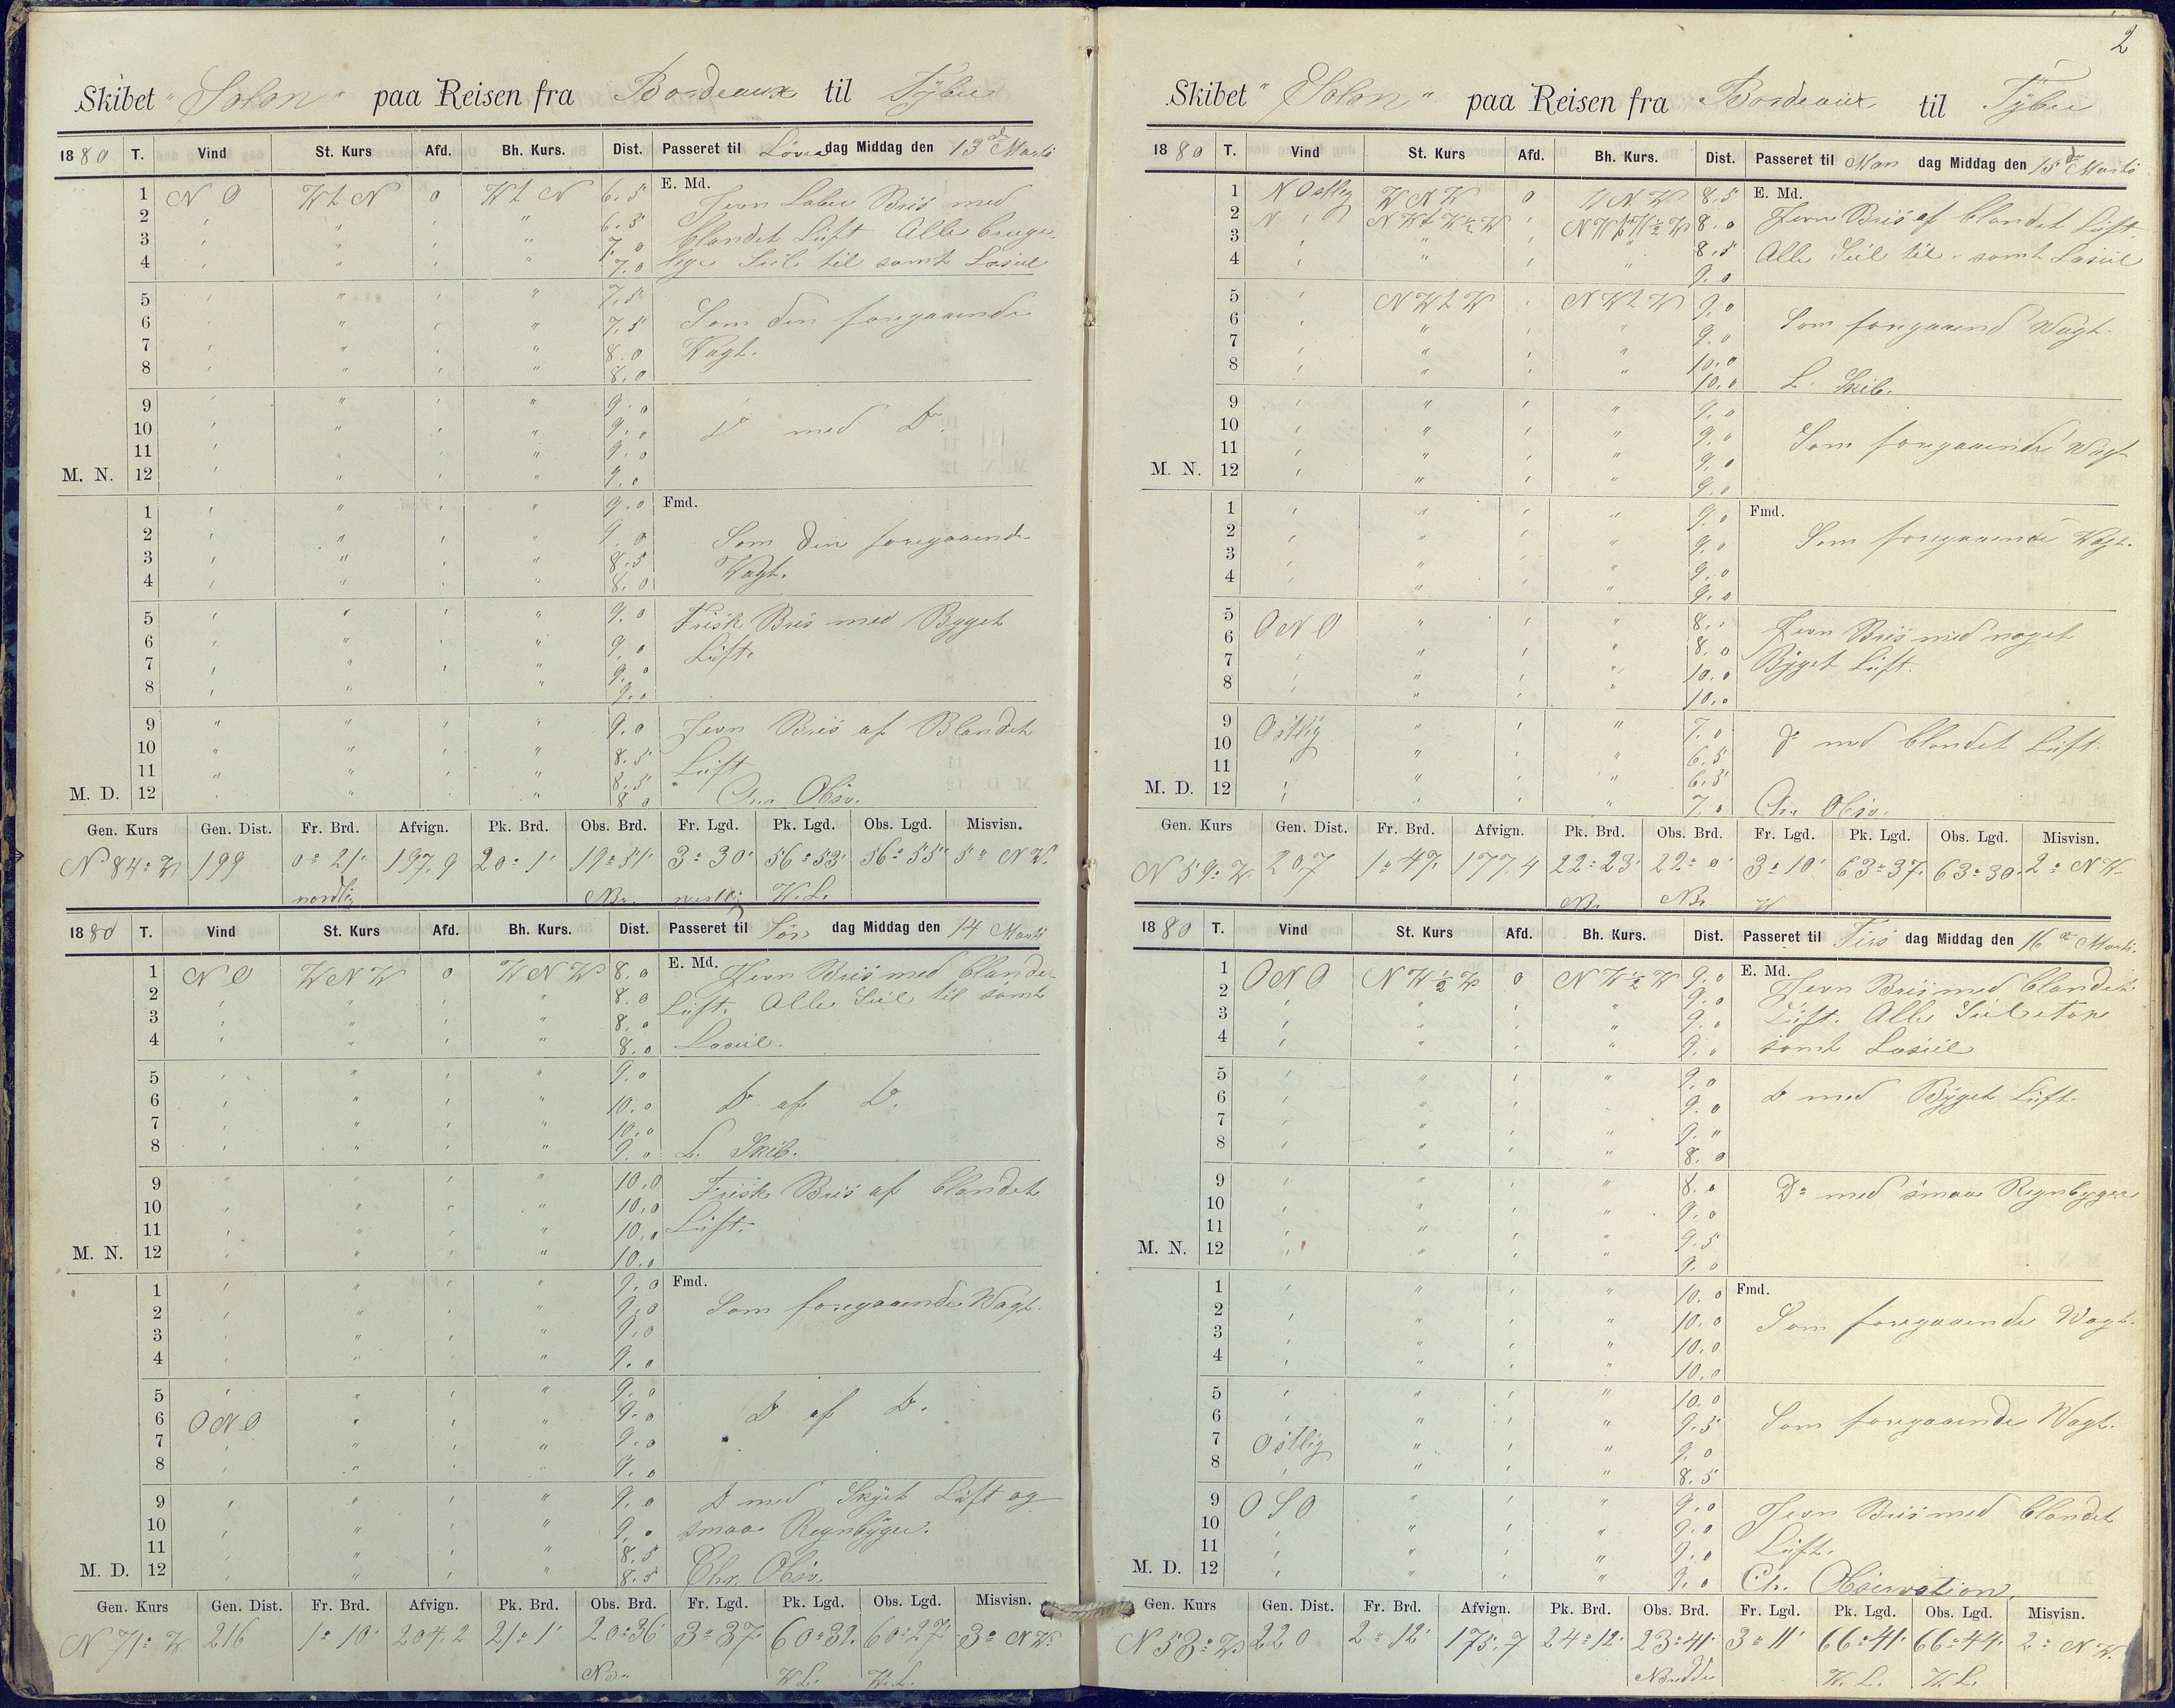 2
Skibet "Solon" paa Reisen fra Bordeaux til Tÿbee
1880 T. Vind St. Kurs Afd. Bh. Kurs. Dist. Passeret til Løverdag Middag den 13de Marts
1 N O W t N 0 W t N 6.5 E. Md. Jevn Laber Bris med
2 " " " " 6.5 blandet Lüft Alle brüge-
3 " " " " 7.0
4 " " " " 7.0 lige Seil til samt Læseil
5 " " " " 7.5
6 " " " " 7.5 Som den foregaaende
7 " " " " 8.0 Vagt.
8 " " " " 8.0
9 " " " " 9.0
10 " " " " 9.0 Do med Do.
11 " " " " 9.0
M. N. 12 " " " " 9.0
1 " " " " 9.0 Fmd.
2 " " " " 9.0 Som den foregaaende
3 " " " " 8.5 Vagt.
4 " " " " 8.0
5 " " " " 9.0 Frisk Bris med Bÿget
6 " " " " 9.0 Lüft.
7 " " " " 9.0
8 " " " " 9.0
9 " " " " 9.0 Jevn Bris af Blandet
10 " " " " 8.5 Lüft
11 " " " " 8.5
M. D. 12 " " " " 8.0 Chr. Obsv.
Gen. Kurs Gen. Dist. Fr. Brd. Afvign. Pk. Brd. Obs. Brd. Fr. Lgd. Pk. Lgd. Obs. Lgd. Misvisn.
N 84° W 199 0° 21' 197.9 20° 1' 19° 51' 3° 30' 56° 53' 56° 55' 5° N W.
nordlig Nbr. westlig W. L.
1880 T. Vind St. Kurs Afd. Bh. Kurs. Dist. Passeret til Søn dag Middag den 14 Marts
1 N O W N W 0 W N W 8.0 E. Md. Jevn Bris med blandet
2 " " " " 8.0 Lüft. Alle Seil til samt
3 " " " " 8.0
4 " " " " 8.0 Læseil.
5 " " " " 9.0
6 " " " " 10.0 Do af Do.
7 " " " " 10.0
8 " " " " 9.0 L. Skib.
9 " " " " 10.0 Frisk Bris af blandet
10 " " " " 10.0
11 " " " " 10.0 Lüft.
M. N. 12 " " " " 10.0
1 " " " " 9.0 Fmd.
2 " " " " 9.0 Som foregaaende Vagt.
3 " " " " 9.0
4 " " " " 9.0
5 " " " " 9.0
6 O N O " " " 9.0 Do af Do.
7 " " " " 9.0
8 " " " " 9.0
9 " " " " 9.0 Do med Skÿet Lüft og
10 " " " " 9.0 smaa Regnbÿger.
11 " " " " 8.5
M. D. 12 " " " " 8.5 Chr. Obsv.
Gen. Kurs Gen. Dist. Fr. Brd. Afvign. Pk. Brd. Obs. Brd. Fr. Lgd. Pk. Lgd. Obs. Lgd. Misvisn.
N 71° W 216 1° 10' 204.2 21° 1' 20° 36' 3° 37' 60° 32' 60° 27' 3° N W.
Nbr. W. L. W. L.
Skibet "Solon" paa Reisen fra Bordeaux til Tÿbee
1880 T. Vind St. Kurs Afd. Bh. Kurs. Dist. Passeret til Man dag Middag den 15de Marts
1 N Ostlig W N W 0 W N W 8.5 E. Md.
2 N " O N W t W ½ W " N W t W ½ W 8.0 Jevn Bris af blandet Lüft
3 " " " " 8.5 Alle Seil til samt Læseil
4 " " " " 9.0
5 " N W t W " N W t W 9.0
6 " " " " 9.0 Som foregaaend Vagt.
7 " " " " 10.0
8 " " " " 10.0 L. Skib.
9 " " " " 9.0
10 " " " " 9.0 Som foregaaende Vagt
11 " " " " 9.0
M. N. 12 " " " " 9.0
1 " " " " 9.0 Fmd.
2 " " " " 9.0 Som foregaaende Vagt.
3 " " " " 9.0
4 " " " " 9.0
5 O N O " " " 8.0 Jevn Bris med noget
6 " " " " 8.0
7 " " " " 10.0 Bÿget Lüft.
8 " " " " 10.0
9 Ostlig " " " 7.0
10 " " " " 6.5 Do med blandet Lüft.
11 " " " " 6.5
M. D. 12 " " " " 7.0 Chr. Obsv.
Gen. Kurs Gen. Dist. Fr. Brd. Afvign. Pk. Brd. Obs. Brd. Fr. Lgd. Pk. Lgd. Obs. Lgd. Misvisn.
N 59° W 207 1° 47' 177.4 22° 23' 22° 0' 3° 10' 63° 37' 63° 30' 2° N W
Nbr Nbr W
1880 T. Vind St. Kurs Afd. Bh. Kurs. Dist. Passeret til Tirs dag Middag den 16de Marts.
1 O N O N W ½ W 0 N W ½ W 9.0 E. Md. Jevn Bris med blandet
2 " " " " 9.0
3 " " " " 9.0 Lüft. Alle Seil
4 " " " " 9.0 samt Læseil
5 " " " " 9.0
6 " " " " 9.0 Do med Bÿget Lüft.
7 " " " " 9.0
8 " " " " 8.0
9 " " " " 8.0 Do med smaa Regnbÿger
10 " " " " 9.0
11 " " " " 9.5
M. N. 12 " " " " 9.0
1 " " " " 10.0 Fmd.
2 " " " " 10.0 Som foregaaende Vagt.
3 " " " " 10.0
4 " " " " 10.0
5 " " " " 10.0
6 " " " " 9.5 Som foregaaende Vagt.
7 Ostlig " " " 9.0
8 " " " " 8.5
9 O S O " " " 9.0 Jevn Bris med blandet
10 " " " " 9.0
11 " " " " 9.0 Lüft.
M. D. 12 " " " " 9.0 Ch. Observation,
Gen. Kurs Gen. Dist. Fr. Brd. Afvign. Pk. Brd. Obs. Brd. Fr. Lgd. Pk. Lgd. Obs. Lgd. Misvisn.
N 53° W 220 2° 12' 175.7 24° 12' 23° 41' 3° 11' 66° 41' 66° 44' 2° N W.
Nbredde W. L. W. L.